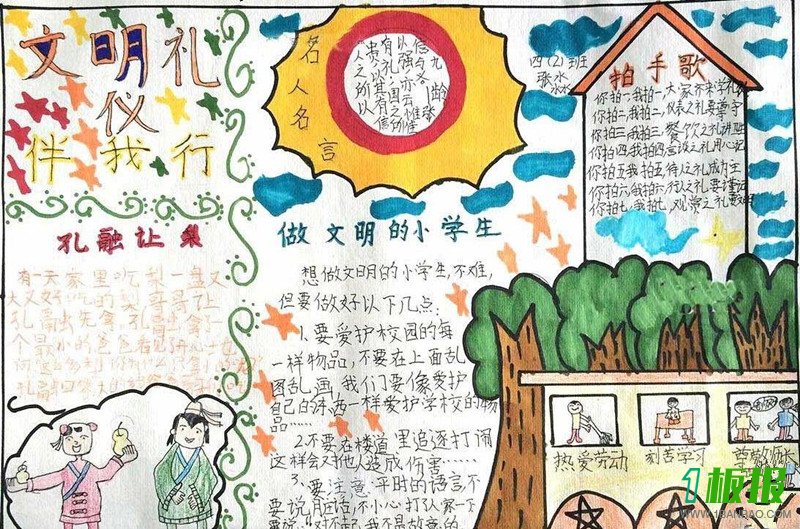 文明礼
仪
伴我行
名人名言
四(2)班
拍手歌
你拍一我拍一,大家齐来学礼仪
你拍二,我拍二,仪表之礼要遵守
你拍三我拍三,餐饮之礼讲
你拍四我拍四言谈之礼用心记
你拍五我拍五待人之礼成为主
你拍六我拍六行人之礼要谨记
你拍七我拍七,观赏之礼要
孔融让梨
有一天家里吃梨一盘又
大又好吃的梨哥哥让
孔融先拿,孔融拿了一
个最小的
孔融回答
做文明的小学生
想做文明的小学生,不难,
但要做好以下几点:
1.要爱护校园的每
一样物品,不要在上面乱
图乱画,我们要像爱护
自己的东西一样爱护学校的物
品……
2.不要在楼道里追逐打闹
这样会对他人造成伤害……
3.要注意平时的语言不
要说脏话,不小心打人家一下
要说"对不起,我不是故意的
热爱劳动
刻苦学习
尊敬师长
1板报
WWW.1BANBAO.COM